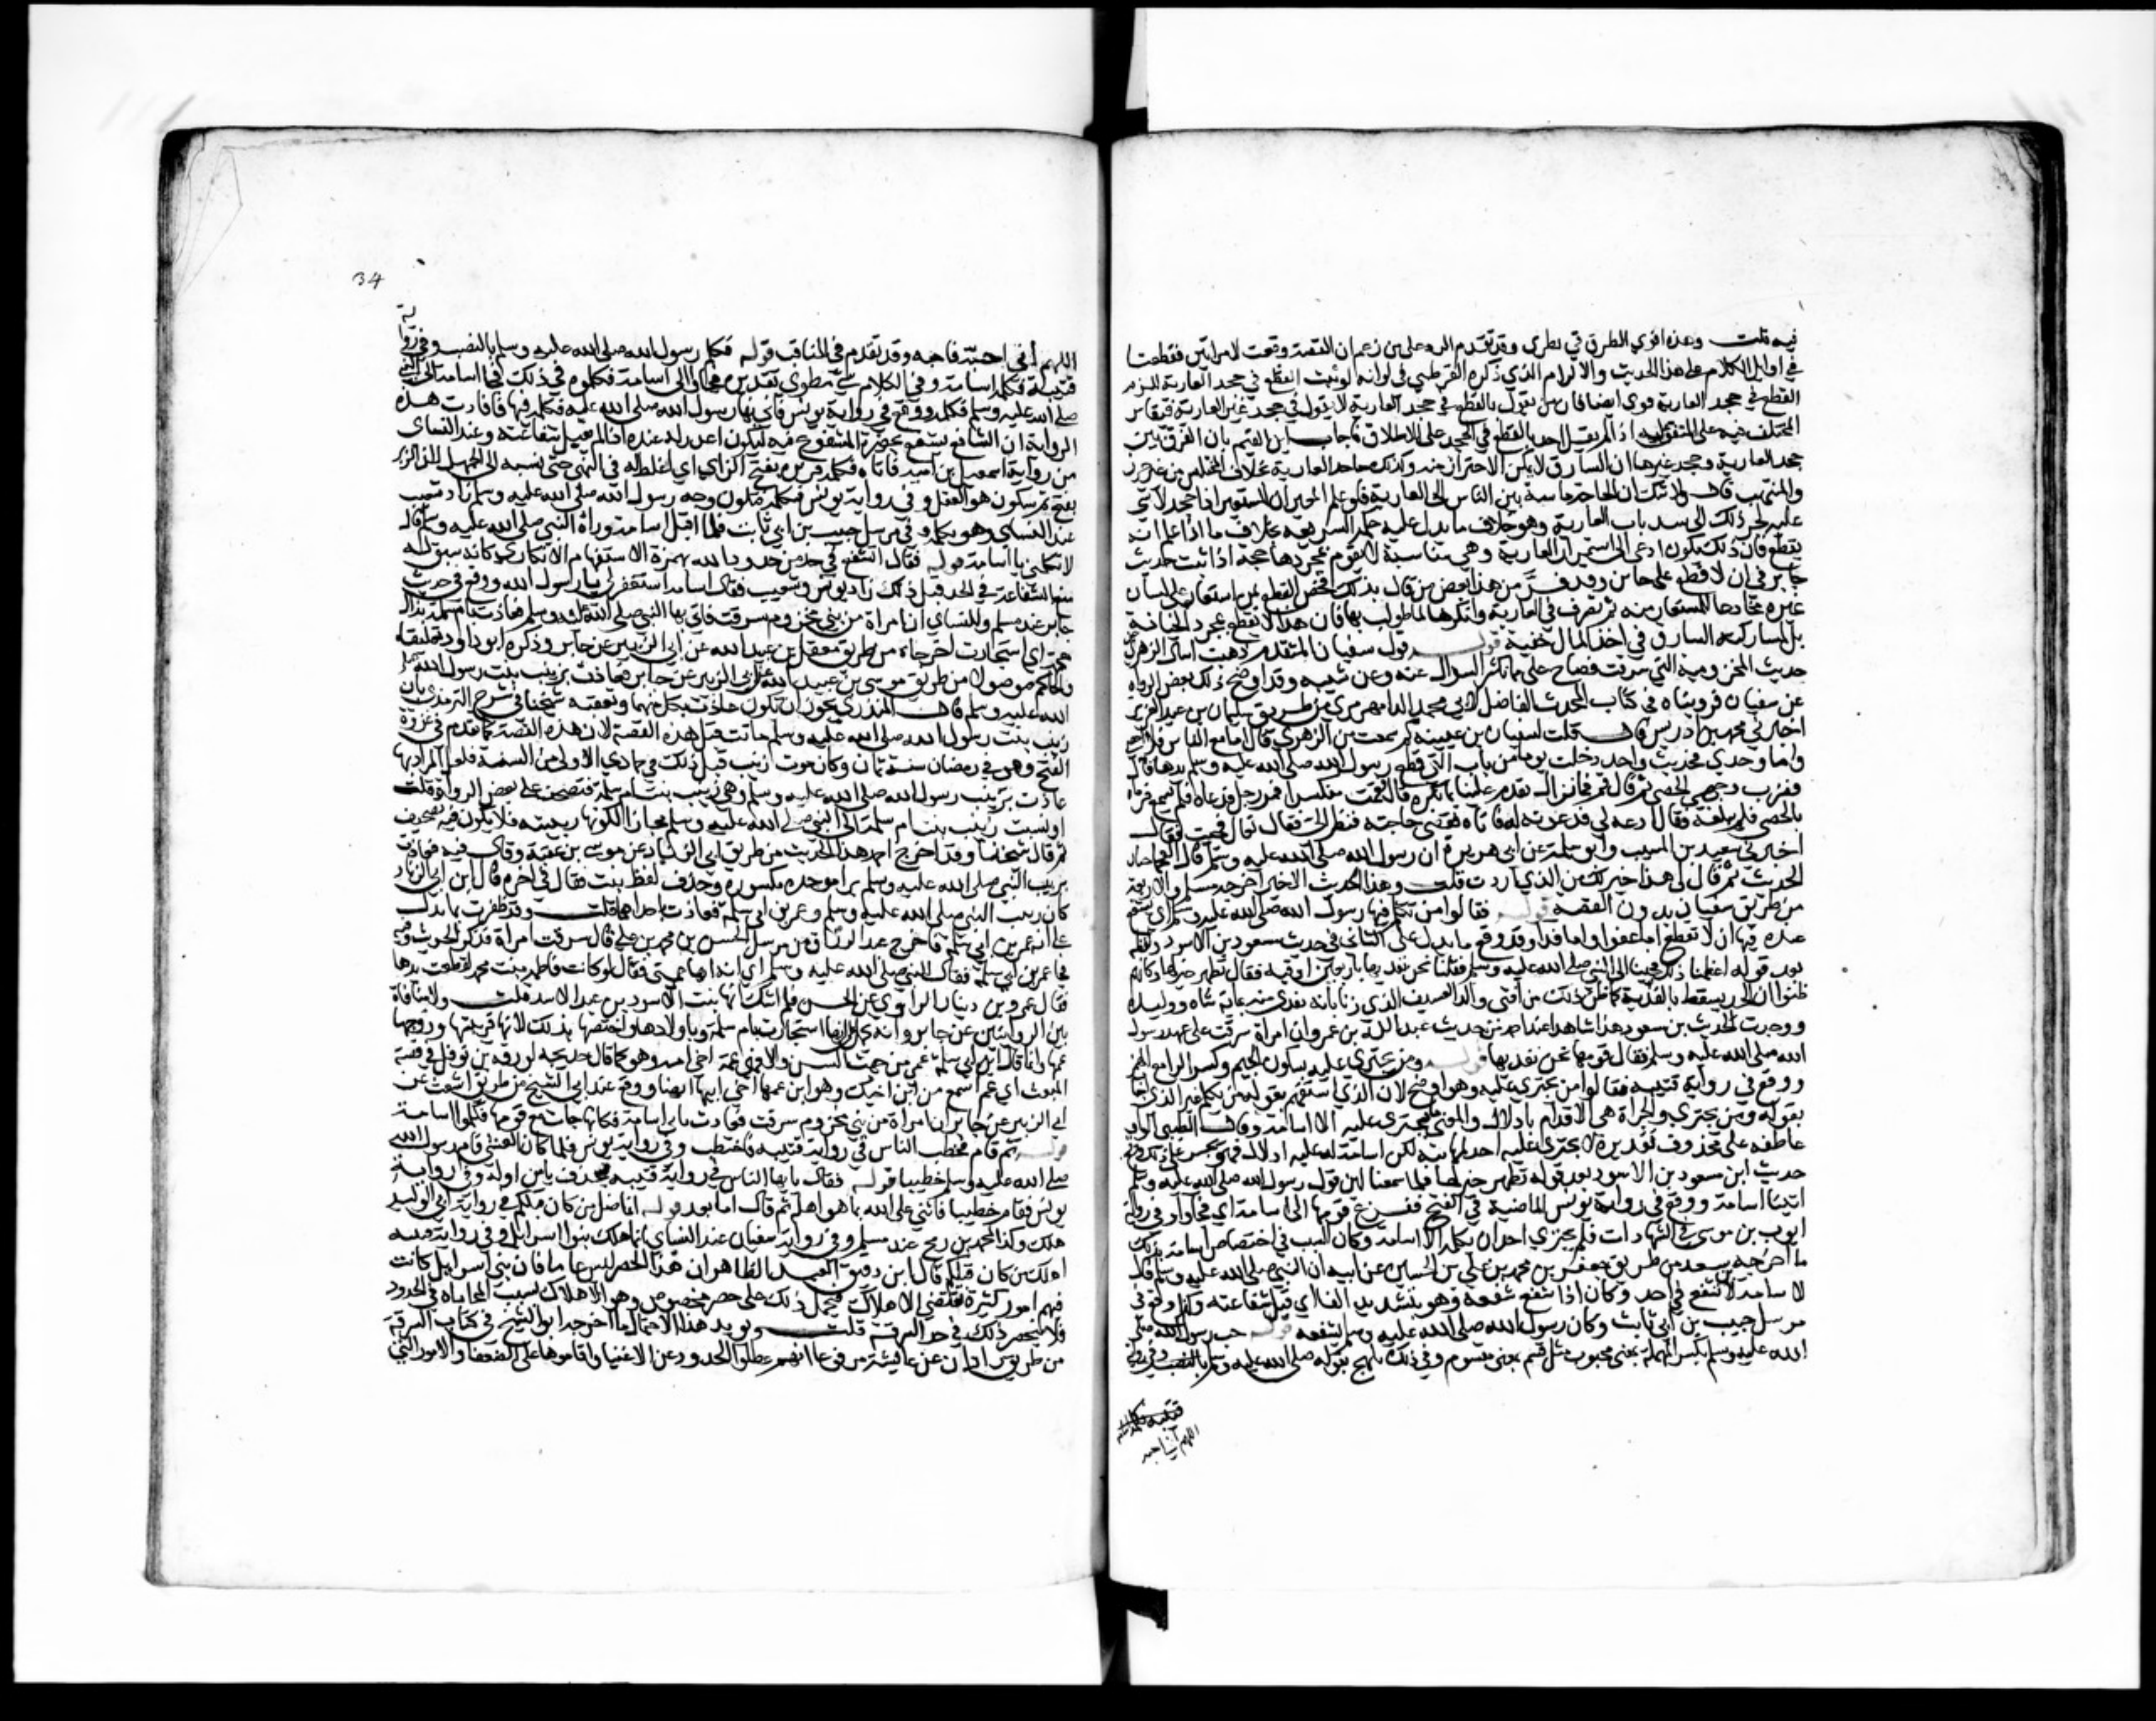 فيه قلت وهذه اقوي الطرق في نظري وقد تقدم الرد على من زعم ان القصة وقعت لامراتين فقطعتا
في اوايل الكلام على هذا الحديث والالزام الذي ذكره القرطبي في انه لو ثبت القطع في جحد العارية للزم
القطع في جحد غير العارية قوي ايضا فان من يقول بالقطع في جحد العارية لا يقول في جحد غير العارية فيقاس
المختلف فيه على المتفق عليه اذ لم يقل احد بالقطع في الجحد على الاطلاق واجاب ابن القيم بان الفرق بين
جحد العارية وجحد غيرها ان السارق لا يمكن الاحتراز منه وكذلك جاحد العارية بخلاف المختلس من غير حرز
والمنتهب قال ولا شك ان الحاجة ماسة بين الناس الى العارية فلو علم المعير ان المستعير اذا جحد لا شي
عليه لجر ذلك الى سد باب العارية وهو خلاف ما يدل عليه حكم الشريعة بخلاف ما اذا علم انه
يقطع فان ذلك يكون ادعى الى استمرار العارية وهي مناسبة لا تقوم بمجردها حجة اذا ثبت حديث
جابر في ان لا قطع على خاين وقد فر من هذا بعض من قال بذلك فخص القطع بمن استعار على لسان
غيره مخادعا للمستعار منه ثم تصرف في العارية وانكرها لما طولب بها فان هذا لا يقطع بمجرد الخيانة
بل لمشاركته السارق في اخذ المال خفية قوله قول سفيان المتقدم ذهبت اسال الزهري عن
حديث المخزومية التي سرقت فصاح علي مما يكثر السوال عنه وعن سببه وقد اوضح ذلك بعض الرواة
عن سفيان فروينا في كتاب المحدث الفاضل لابي محمد الرامهرمزي من طريق سليمان بن عبد العزيز
اخبرني محمد بن ادريس قال قلت لسفيان بن عيينة كم سمعت من الزهري قال اما مع الناس فما احصي
واما وحدي فحديث واحد دخلت يوما من باب
اخبرني سعيد بن المسيب وابو سلمة عن ابي هريرة ان رسول الله صلى الله عليه وسلم قال العجما جبار
الحديث ثم قال لي هذا خير لك من الذي اردت قلت وهذا الحديث الاخير اخرجه مسلم والاربعة
من طريق سفيان بدون القصة قوله فقالوا من يكلم فيها رسول الله صلى الله عليه وسلم اي يشفع
عنده فيها ان لا تقطع اما عفوا واما فداء وقد وقع ما يدل على الثاني في حديث مسعود بن الاسود ولفظه
بعد قوله اعظمنا ذلك فجينا الى النبي صلى الله عليه وسلم فقلنا نحن نفديها باربعين اوقية فقال تطهر خير لها وكانهم
ظنوا ان الحد يسقط بالفدية كما ظن ذلك من افتى والد العسيف الذي زنا بانه يفتدى منه بماية شاة ووليدة
ووجدت لحديث بن مسعود هذا شاهدا عند احمد من حديث عبد الله بن عمرو ان امراة سرقت على عهد رسول
الله صلى الله عليه وسلم فقال قومها نحن نفديها قوله ومن يجتري عليه بسكون الجيم وكسر الرا مع الهمز
ووقع في رواية قتيبة فقالوا من يجتري عليه وهو اوضح لان الذي استفهم بقوله من يكلم غير الذي اجاب
بقوله ومن يجتري والجراة هي الاقدام بادلال والمعنى ما يجتري عليه الا اسامة وقال الطيبي الواو
عاطفة على محذوف تقديره لا يجتري عليه احد لمهابته لكن اسامة له عليه ادلال فهو يجسر على ذلك ووقع في
حديث ابن مسعود بن الاسود بعد قوله تطهر خير لها فلما سمعنا لين قول رسول الله صلى الله عليه وسلم
اتينا اسامة ووقع في رواية يونس الماضية في الفتح ففزع قومها الى اسامة اي لجاوا وفي رواية
ايوب بن موسى في الشهادات فلم يجتري احد ان يكلمه الا اسامة وكان السبب في اختصاص اسامة بذلك
ما اخرجه بن سعد من طريق جعفر بن محمد بن علي بن الحسين عن ابيه ان النبي صلى الله عليه وسلم قال
لاسامة لا تشفع في حد وكان اذا شفع شفعه وهو بتشديد الفا اي قبل شفاعته وكذا وقع في
مرسل حبيب بن ابي ثابت وكان رسول الله صلى الله عليه وسلم يشفعه قوله حب رسول الله صلى
الله عليه وسلم بكسر المهملة بمعنى محبوب مثل قسم بمعنى مقسوم وفي ذلك تلميح بقوله صلى الله عليه وسلم
اللهم اني احبه
34
اللهم اني احبه فاحبه وقد تقدم في المناقب قوله فكلم رسول الله صلى الله عليه وسلم بالنصب وفي رواية
قتيبة فكلمه اسامة وفي الكلام شي مطوي تقديره فجاوا الى اسامة فكلموه في ذلك فجا اسامة الى النبي
صلى الله عليه وسلم فكلمه ووقع في رواية يونس فاتي بها رسول الله صلى الله عليه فكلمه فيها فافادت هذه
الرواية ان الشافع يشفع بحضرة المشفوع فيه ليكون اعذر له عنده اذا لم يقبل شفاعته وعند النساي
من رواية اسمعيل بن امية فكلمه فزبره بفتح الزاي اي اغلظ له في النهي حتى نسبه الى الجهل لان الزبر
بفتح ثم سكون هو العقل وفي رواية يونس فكلمه فتلون وجه رسول الله صلى الله عليه وسلم زاد شعيب
عند النسائي وهو يكلمه وفي مرسل حبيب بن ابي ثابت فلما اقبل اسامة وراه النبي صلى الله عليه وسلم قال
لا تكلمني يا اسامة قوله فقال اتشفع في حد من حدود الله بهمزة الاستفهام الانكاري وكانه سبق له
منع الشفاعة في الحد قبل ذلك زاد يونس وشعيب فقال اسامة استغفر لي يا رسول الله ووقع في حديث
جابر عند مسلم والنساي ان امراة من بني مخزوم سرقت فاتي بها النبي صلى الله عليه وسلم فعاذت بام سلمة بذال
معجمة اي استجارت اخرجاه من طريق معقل بن عبيد الله عن ابي الزبير عن جابر وذكره ابو داود تعليقا
والحاكم موصولا من طريق موسى بن عقبة عن ابي الزبير عن جابر فعاذت بزينب بنت رسول الله صلى
الله عليه وسلم قال المنذري يجوز ان تكون عاذت بكل منهما وتعقبه شيخنا في شرح الترمذي بان
زينب بنت رسول الله صلى الله عليه وسلم ماتت قبل هذه القصة لان هذه القصة كما تقدم في غزوة
الفتح وهو في رمضان سنة ثمان وكان موت زينب قبل ذلك في جمادى الاولى من السنة فلعل المراد انها
عاذت بزينب ربيبة رسول الله صلى الله عليه وسلم وهي زينب بنت ام سلمة فتصحفت على بعض الرواة قلت
او نسبت زينب بنت ام سلمة الى النبي صلى الله عليه وسلم مجازا لكونها ربيبته فلا يكون فيه تصحيف
ثم قال شيخنا وقد اخرج احمد هذا الحديث من طريق ابن ابي الزناد عن موسى بن عقبة وقال فيه فعاذت
بربيب النبي صلى الله عليه وسلم برا موحدة مكسورة وحذف لفظ بنت وقال في اخره قال ابن ابي الزناد
كان ربيب النبي صلى الله عليه وسلم وعمر بن ابي سلمة فعاذت باحدهما قلت وقد ظفرت بما يدل
على انه عمر بن ابي سلمة فاخرج عبد الرزاق من مرسل الحسن بن محمد بن علي قال سرقت امراة فذكر الحديث وفيه
فجا عمر بن ابي سلمة فقال للنبي صلى الله عليه وسلم اي ابه انها عمتي فقال لو كانت فاطمة بنت محمد لقطعت يدها
فقال عمرو بن دينار الراوي عن الحسن فلم اشك انها بنت الاسود بن عبد الاسد قلت ولا منافاة
بين الروايتين عن جابر استجارت بام سلمة وباولادها واختصها بذلك لانها قريبتها وزوجها
عمها وانما قال عمر بن ابي سلمة عمتي من جهة السن والا فهي بنت عمه اخي ابيه وهو كما قال خديجة لورقة بن نوفل في قصة
المبعث اي عم اسمع من ابن اخيك وهو ابن عمها اخي ابيها ايضا ووقع عند ابي الشيخ من طريق اشعث عن
ابي الزبير عن جابر ان امراة من بني مخزوم سرقت فعاذت باسامة فكانها جات مع قومها فكلموا اسامة
قوله ثم قام فخطب الناس في رواية قتيبة فاختطب وفي رواية يونس فلما كان العشي قام رسول الله
صلى الله عليه وسلم خطيبا قوله فقال يا ايها الناس في رواية قتيبة بحذف يا من اوله وفي رواية
يونس فقام خطيبا فاثنى على الله بما هو اهله ثم قال اما بعد قوله انما ضل من كان قبلكم في رواية ابي الوليد
هلك وكذا لمحمد بن رمح عند مسلم وفي رواية سفيان عند النساي انما هلك بنوا اسرايل وفي رواية قتيبة
اهلك من كان قبلكم قال ابن دقيق العيد الظاهر ان هذا الحصر ليس عاما فان بني اسرايل كانت
فيهم امور كثيرة تقتضي الاهلاك فيحمل ذلك على حصر مخصوص وهو الاهلاك بسبب المحاباة في الحدود
فلا ينحصر ذلك في حد السرقة قلت ويويد هذا الاحتمال ما اخرجه ابو الشيخ في كتاب السرقة
من طريق زادان عن عايشة مرفوعا انهم عطلوا الحدود عن الاغنيا واقاموها على الضعفا والامور التي